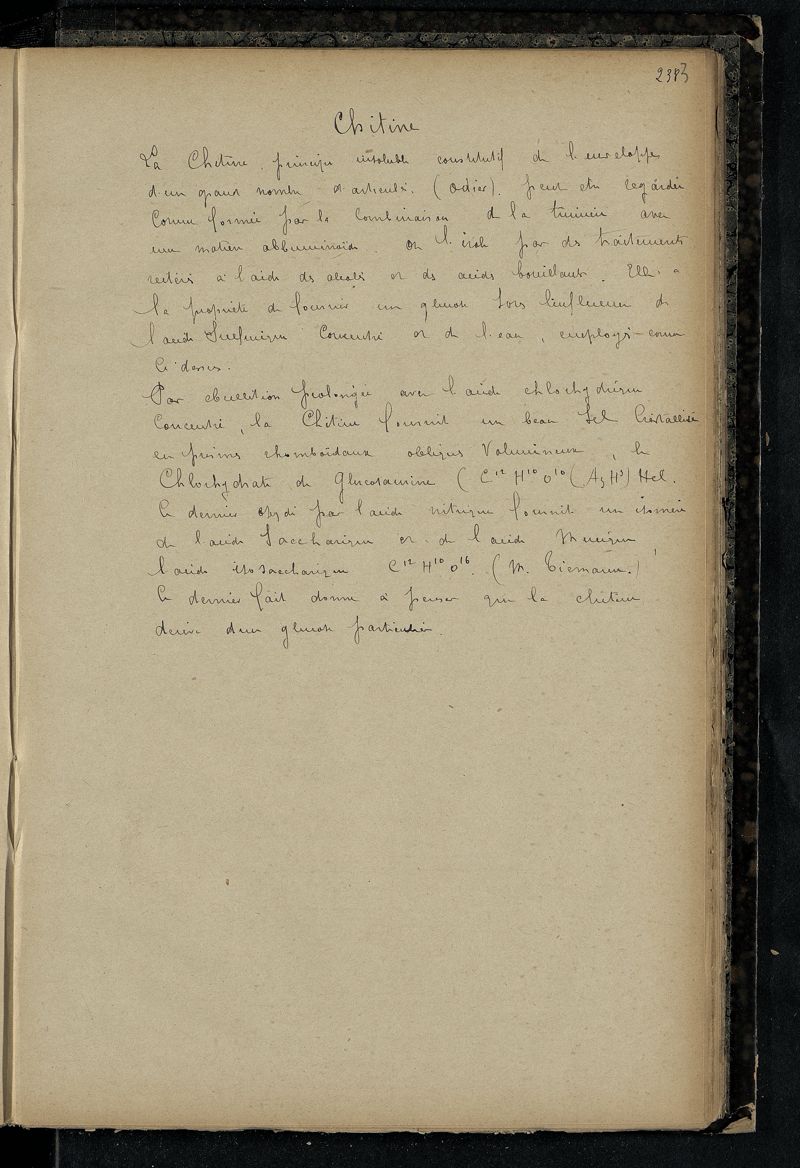 2383
Chitine
La Chitine principe insoluble constitutif de l'enveloppe
d'un grand nombre d'articulés. (Odier). peut être regardée
Comme formée par la Combinaison de la tunicine avec
une matière albuminoïde. On l'isole par des traitements
réitérés à l'aide des alcalis et des acides bouillants. Elle a
la propriété de fournir un glucose sous l'influence de
l'acide Sulfurique Concentré et de l'eau, employés comme
Ci dessus.
Par ébullition prolongée avec l'acide chlorhydrique
Concentré, la Chitine fournit un beau Sel Cristallisé
en prismes rhomboïdaux obliques Volumineux, le
Chlorhydrate de Glucosamine (C¹² H¹⁰ O¹⁰ (Az H³) Hcl.
Ce dernier oxydé par l'acide nitrique fournit un isomère
de l'acide Saccharique et de l'acide Mucique,
l'acide isosaccharique C¹² H¹⁰ O¹⁶. (M. Tiemann.)
Ce dernier fait donne à penser que la chitine
dérive d'un glucose particulier.